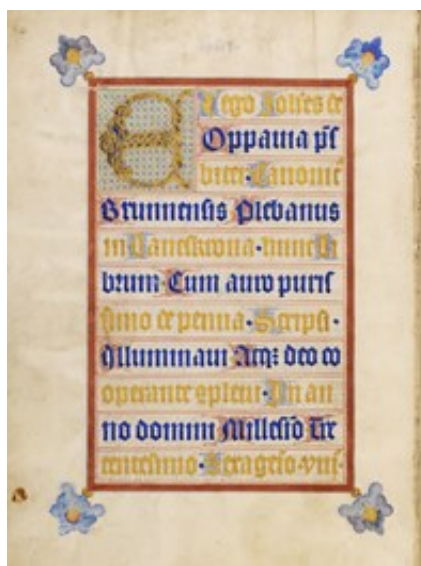 Et ego Johes de
Oppauia p̄s
biter Canonic̄
Brunnensis Plebanus
in Lanckrona · hunc li
brum · Cum auro puris
simo de penna · Scripsi ·
Illuminaui Atq; deo co
operante cpleui · In an
no domini Millesīo Tre
centesimo · Sexagesīo · viij ·